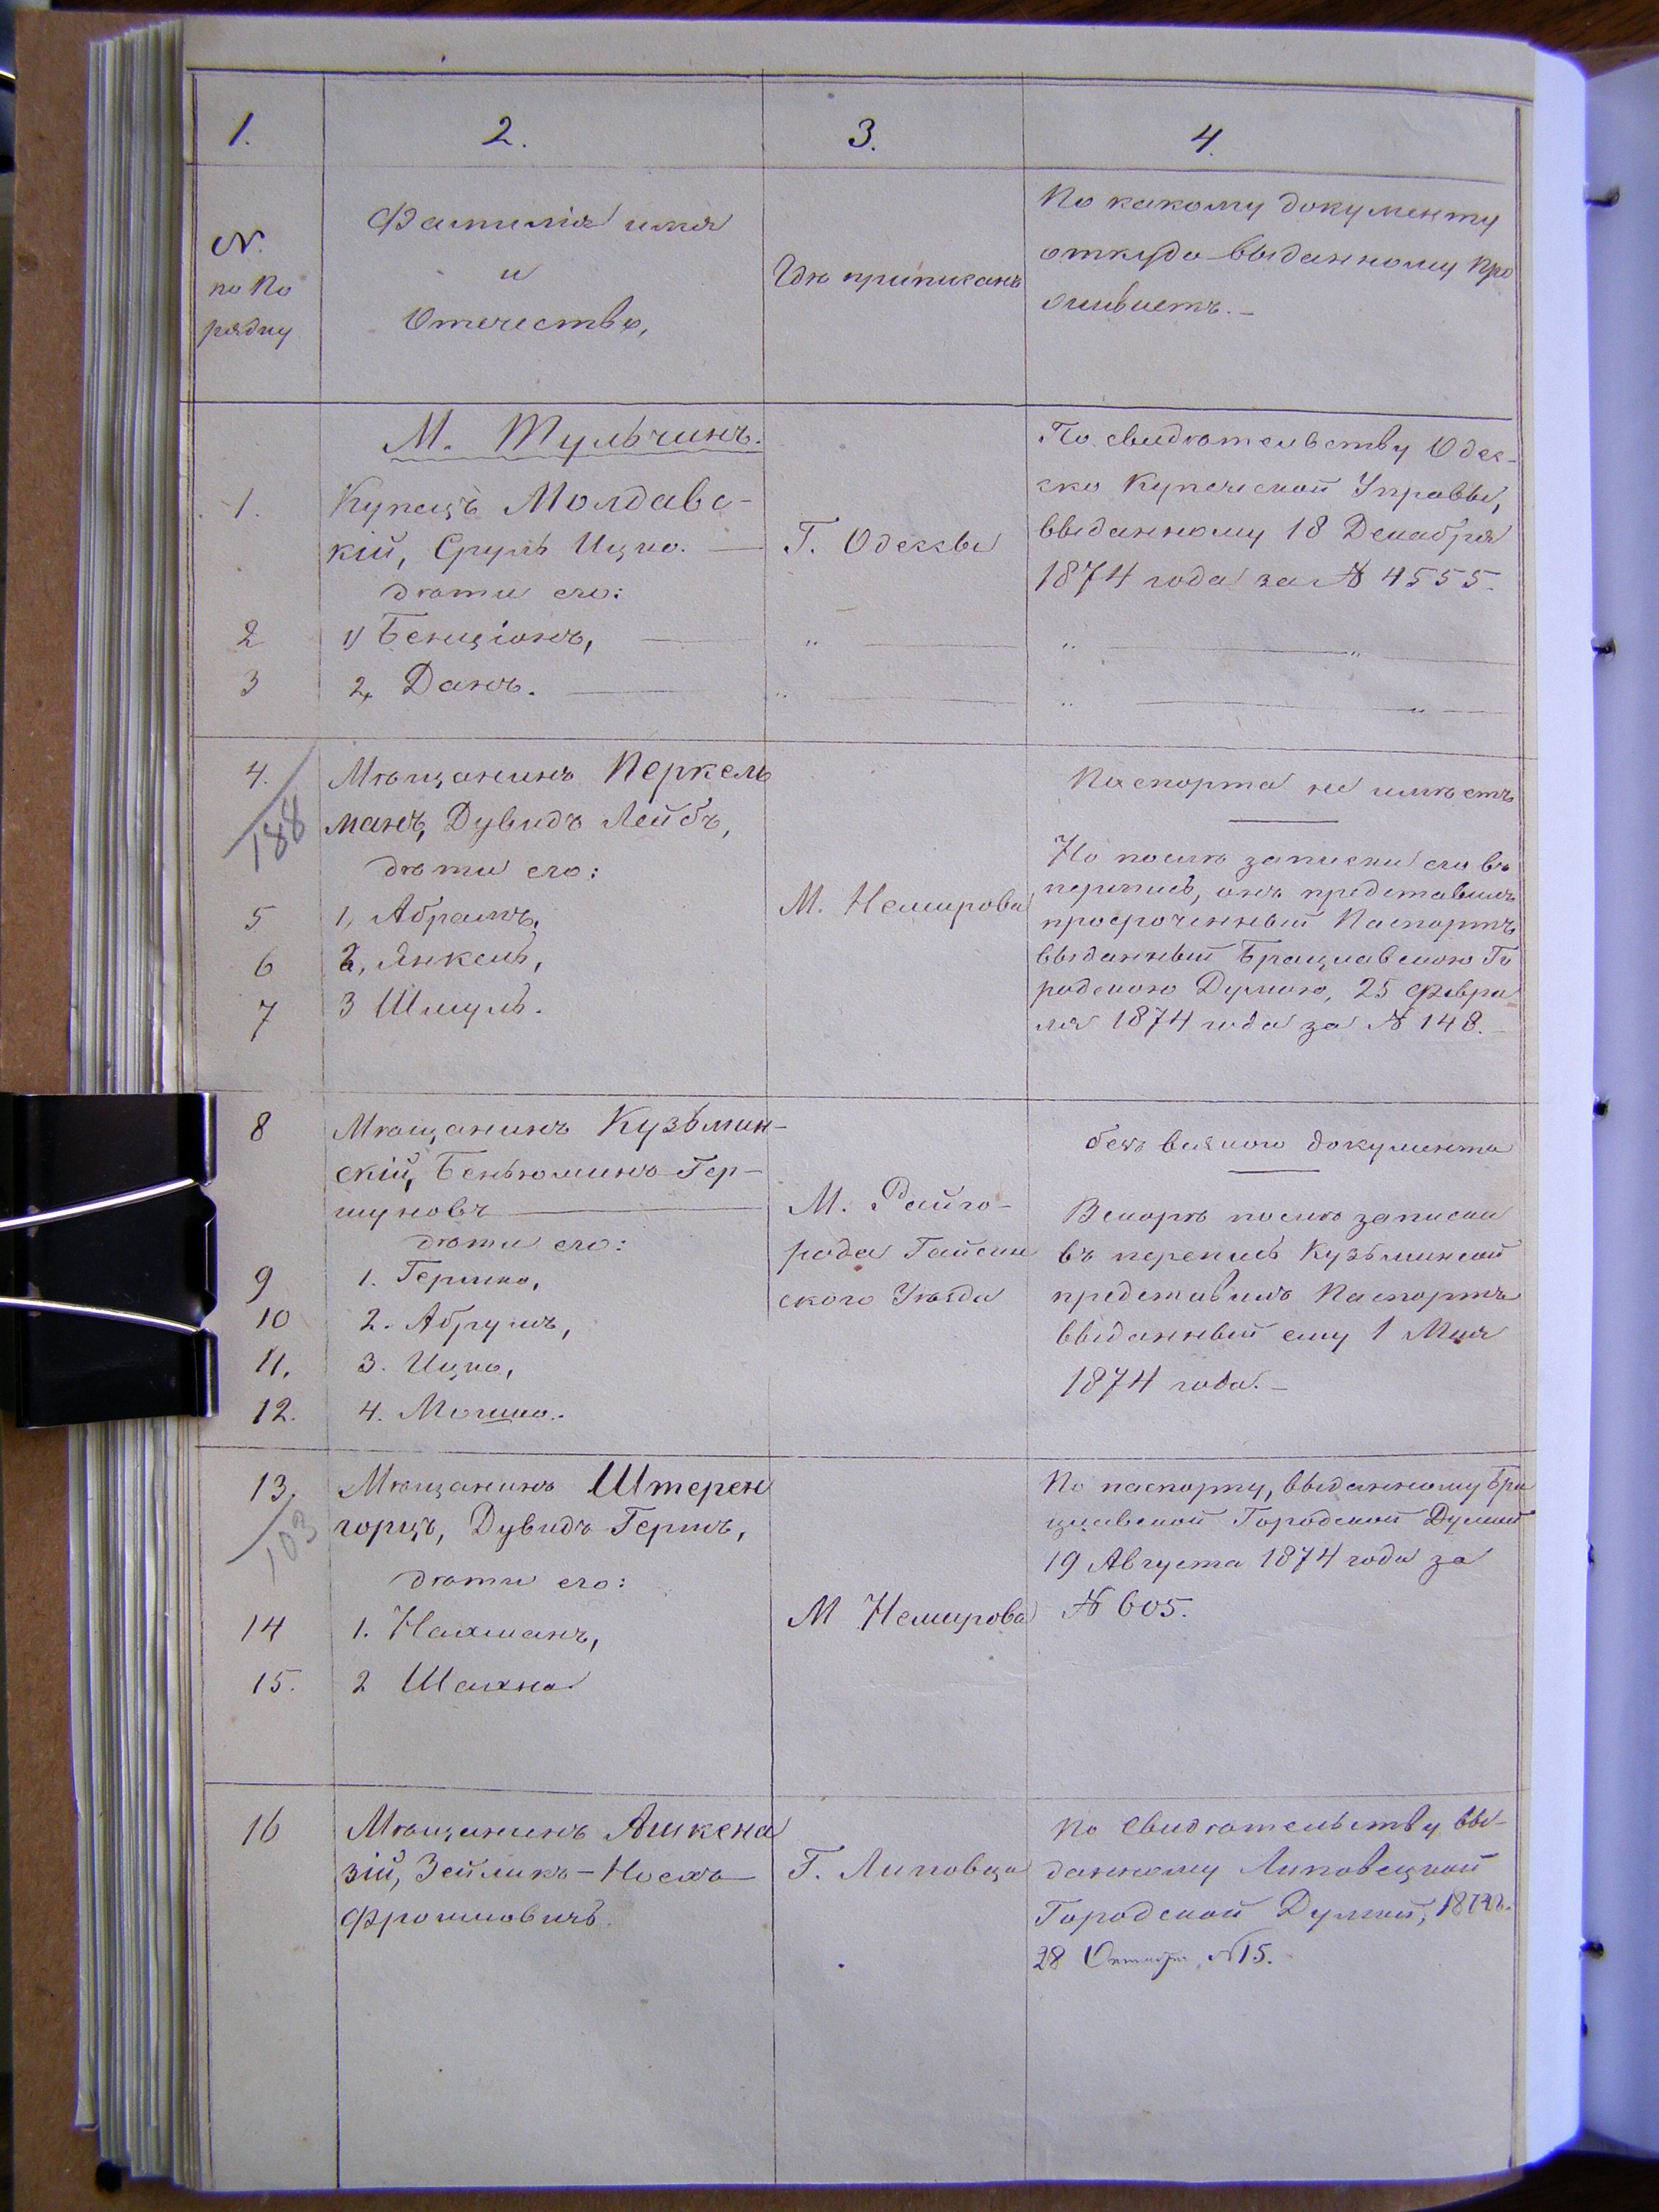 1.
2.
3.
4.
№
по По
рядку
Фамилія имя
и
Отчество,
Гдѣ приписанъ
По какому документу
откуда выданному про
живаетъ.
М. Тульчинъ.
1.
Купецъ Молдавс-
кій, Сруль Ицко.
Г. Одессы
По свидѣтельству Одес-
ско Купеческой Управы,
выданному 18 Декабря
1874 года за № 4555.
дѣти его:
2
1) Бенціонъ,
3
2, Данъ.
4.
188
Мѣщанинъ Перкель
манъ, Дувидъ Лейбъ,
дѣти его:
5
1, Абрамъ,
6
2, Янкель,
7
3 Шмуль.
М. Немирова
Паспорта не имѣетъ
Но послѣ записки его въ
перепись, онъ представилъ
просроченный Паспортъ
выданный Брацлавскою Го
родскою Думою, 25 Февра
ля 1874 года за № 148.
8
Мѣщанинъ Кузьмин-
скій, Беньюминъ Гер-
шуновъ
дѣти его:
9
1. Гершко,
10
2. Абрумъ,
11.
3. Ицко,
12.
4. Мошко.
М. Райго-
рода Гайсин
ского Уѣзда
безъ всякого документа
Вскорѣ послѣ записки
въ перепись Кузьминскій
представилъ Паспортъ
выданный ему 1 Мая
1874 года.
13.
103
Мѣщанинъ Штерен
горцъ, Дувидъ Гершъ,
дѣти его:
14
1. Нахманъ,
15.
2 Шахна
М Немирова
По паспорту, выданному Бра
цлавской Городской Думой
19 Августа 1874 года за
№ 605.
16
Мѣщанинъ Ашкена
зій, Зейликъ-Носъ
Фроимовичъ.
Г. Липовца
По Свидѣтельству вы-
данному Липовецкой
Городской Думой,
28 Октября, №15.